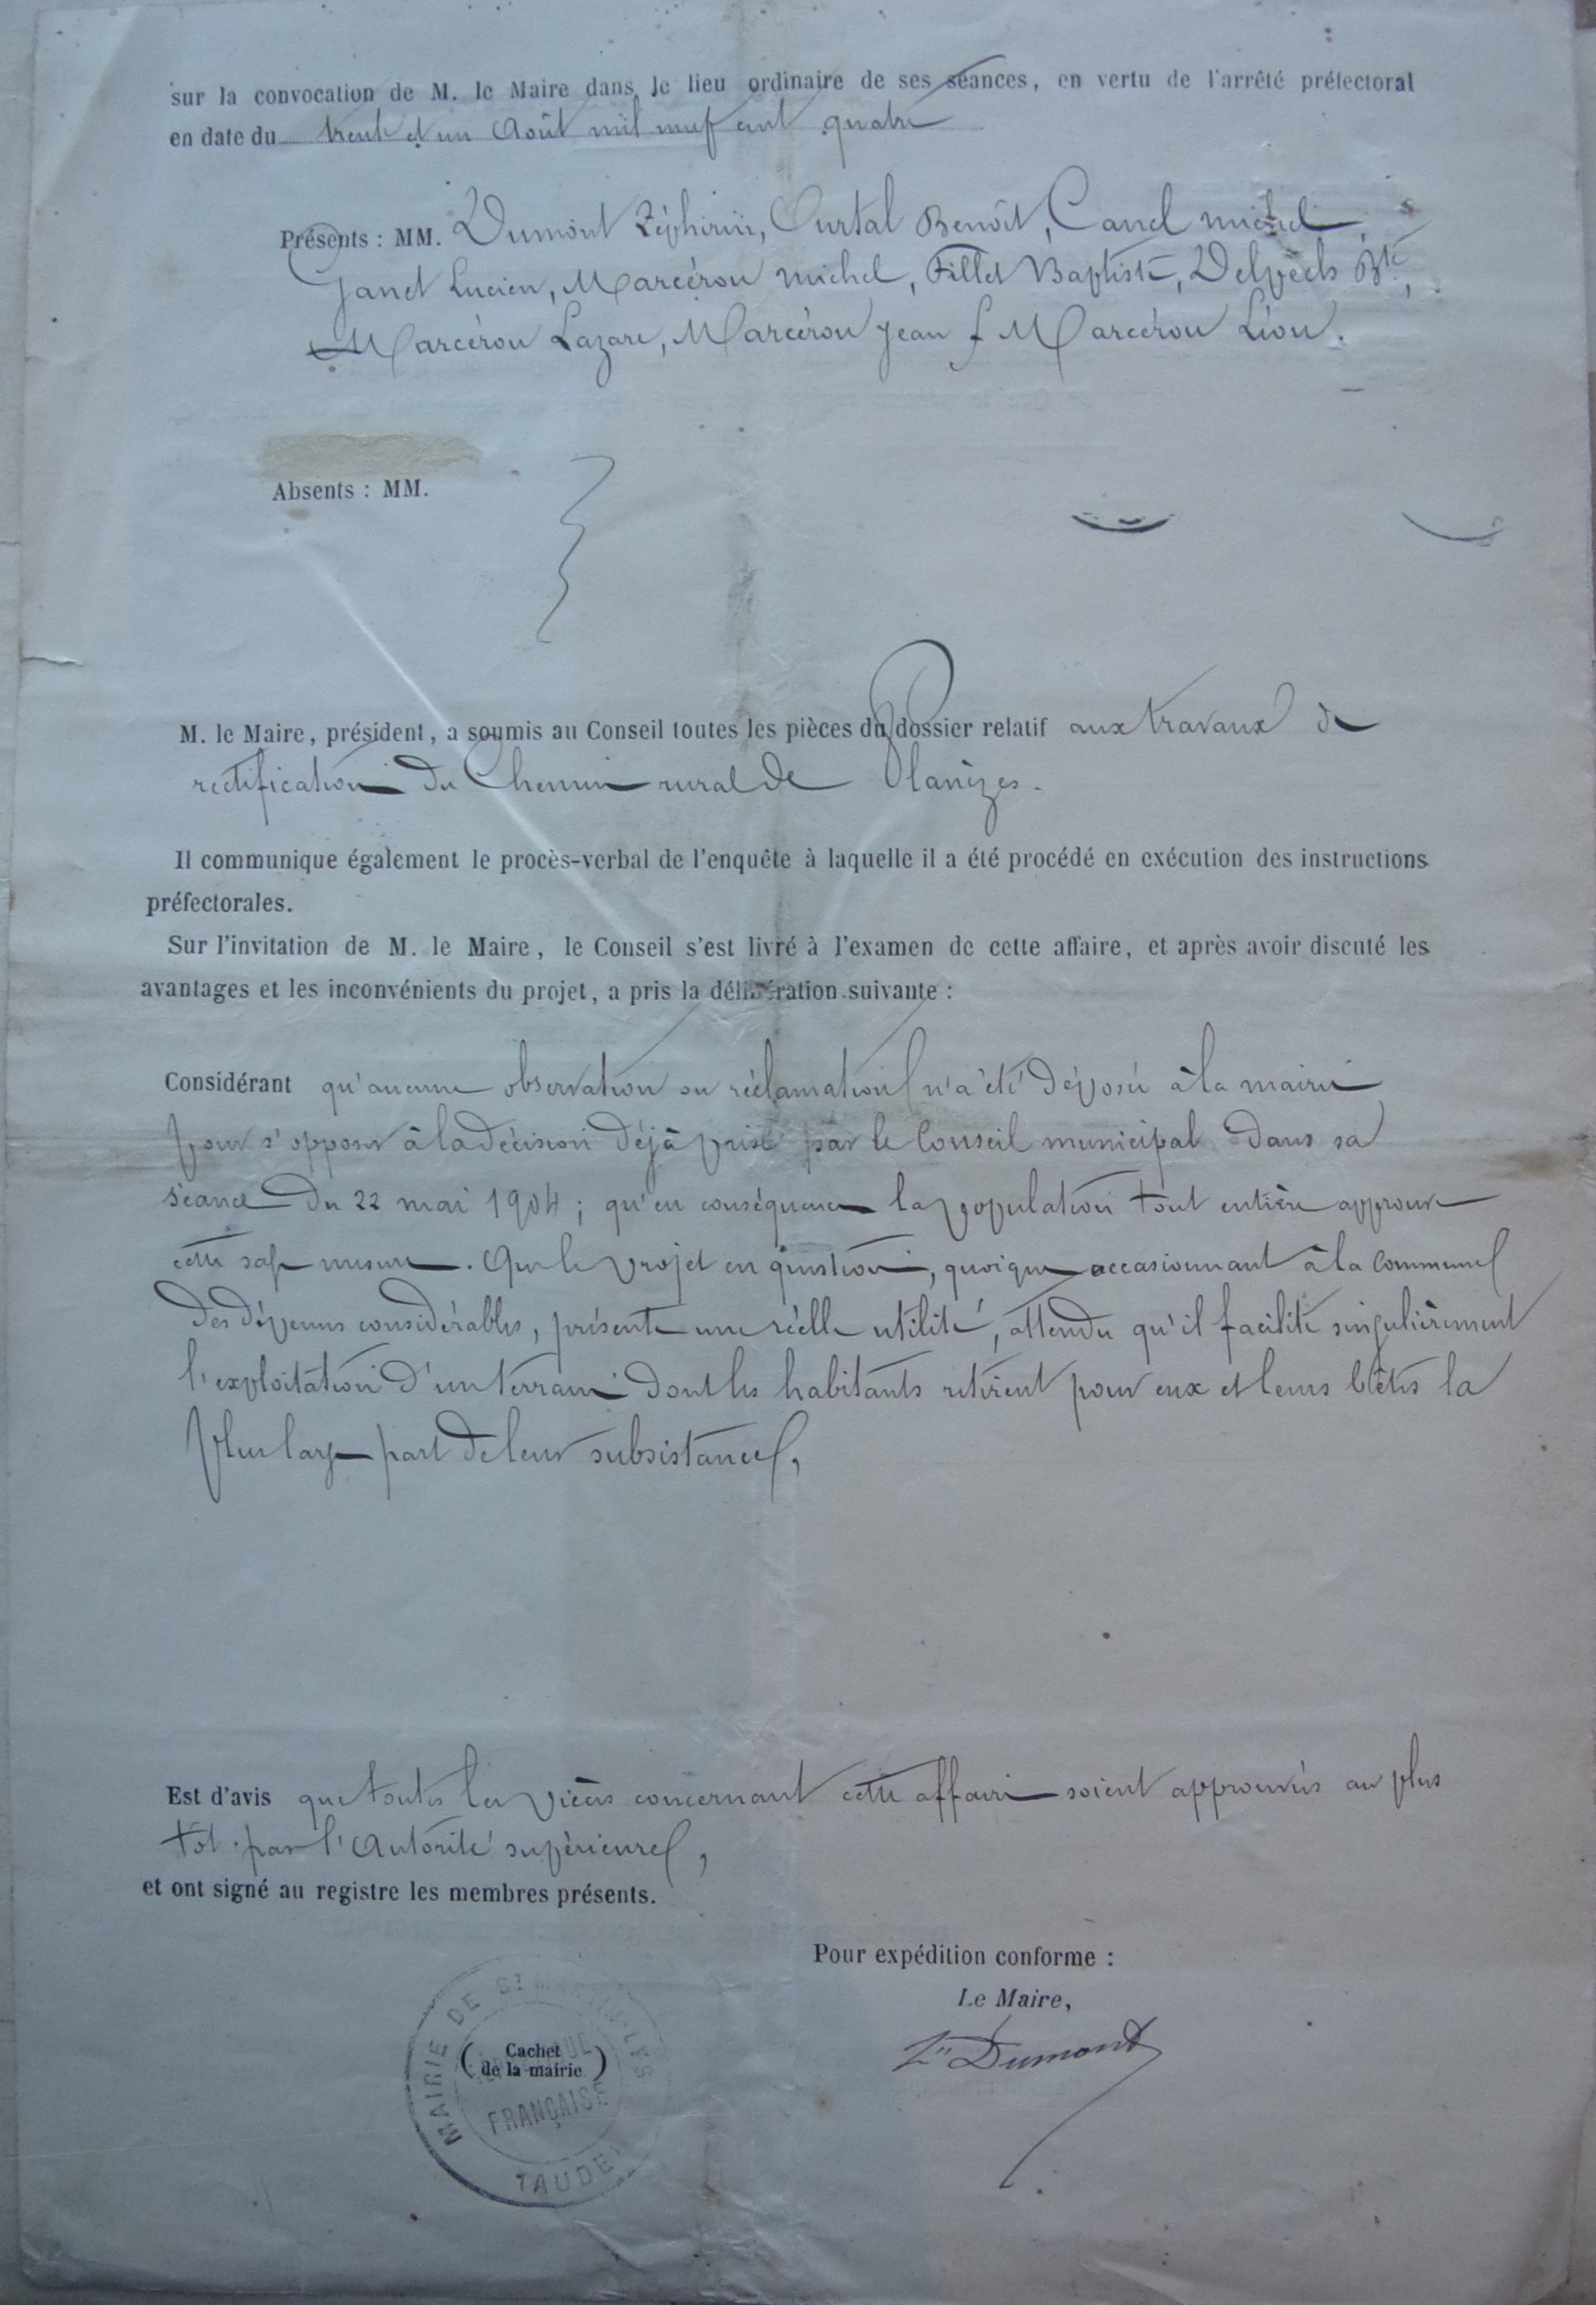 sur la convocation de M. le Maire dans le lieu ordinaire de ses séances, en vertu de l'arrêté préfectoral
en date du trente et un Août mil neuf cent quatre
Présents : MM. Dumont Zéphirin, Ourtal Benoît, Canel michel,
Janet Lucien, Marcérou michel, Fillet Baptiste, Delpech Bte,
Marcérou Lazare, Marcérou Jean & Marcérou Léon.
Absents : MM.
M. le Maire, président, a soumis au Conseil toutes les pièces du dossier relatif aux travaux de
rectification du Chemin rural de Planèzes.
Il communique également le procès-verbal de l'enquête à laquelle il a été procédé en exécution des instructions
préfectorales.
Sur l'invitation de M. le Maire, le Conseil s'est livré à l'examen de cette affaire, et après avoir discuté les
avantages et les inconvénients du projet, a pris la délibération suivante :
Considérant qu'aucune observation ou réclamation n'a été déposée à la mairie
pour s'opposer à la décision déjà prise par le Conseil municipal dans sa
séance du 22 mai 1904 ; qu'en conséquence la population tout entière approuve
cette sage mesure. Que le projet en question, quoique occasionnant à la Commune
des dépenses considérables, présente une réelle utilité, attendu qu'il facilite singulièrement
l'exploitation d'un terrain dont les habitants retirent pour eux et leurs bêtes la
plus large part de leur subsistance,
Est d'avis que toutes les pièces concernant cette affaire soient approuvées au plus
tôt par l'Autorité supérieure,
et ont signé au registre les membres présents.
Pour expédition conforme :
Le Maire,
Zin Dumont
MAIRIE DE ST
FRANÇAISE
AUDE
( Cachet
de la mairie )